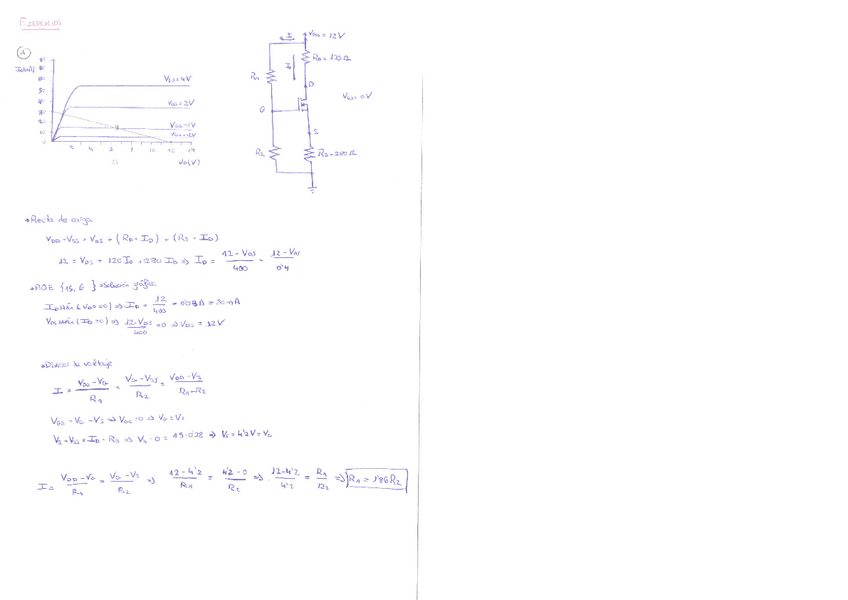 EJERCICIOS
A
ID(mA)
VGS=4V
VGS=2V
VGS=0V
VGS=-2V
2 4 6 8 10 12 14
VDS(V)
I
VDD=12V
RD=120Ω
R1
ID
D
VGS=0V
G
S
R2
RS=280Ω
→Recta de carga
VDD-VSS=VDS+(RD·ID)+(RS·ID)
12=VDS+120ID+280ID⇒ID= 12-VDS/400 = 12-VDS/0'4
→P.O.E {15, 6 } →Solución gráfica
ID MÁX (VDS=0)⇒ID= 12/400 =0'03A=30mA
VDS MÁX (ID=0)⇒ 12-VDS/400 =0⇒VDS=12V
→Divisor de voltaje
I= VDD-VG/R1 = VG-VSS/R2 = VDD-VS/R1-R2
VGS=VG-VS⇒VGS=0⇒VG=VS
VS-VSS=ID·RS⇒VS-0=15·0'28⇒VS=4'2V=VG
I= VDD-VG/R1 = VG-VS/R2 ⇒ 12-4'2/R1 = 4'2-0/R2 ⇒ 12-4'2/4'2 = R1/R2 ⇒ R1=1'86R2